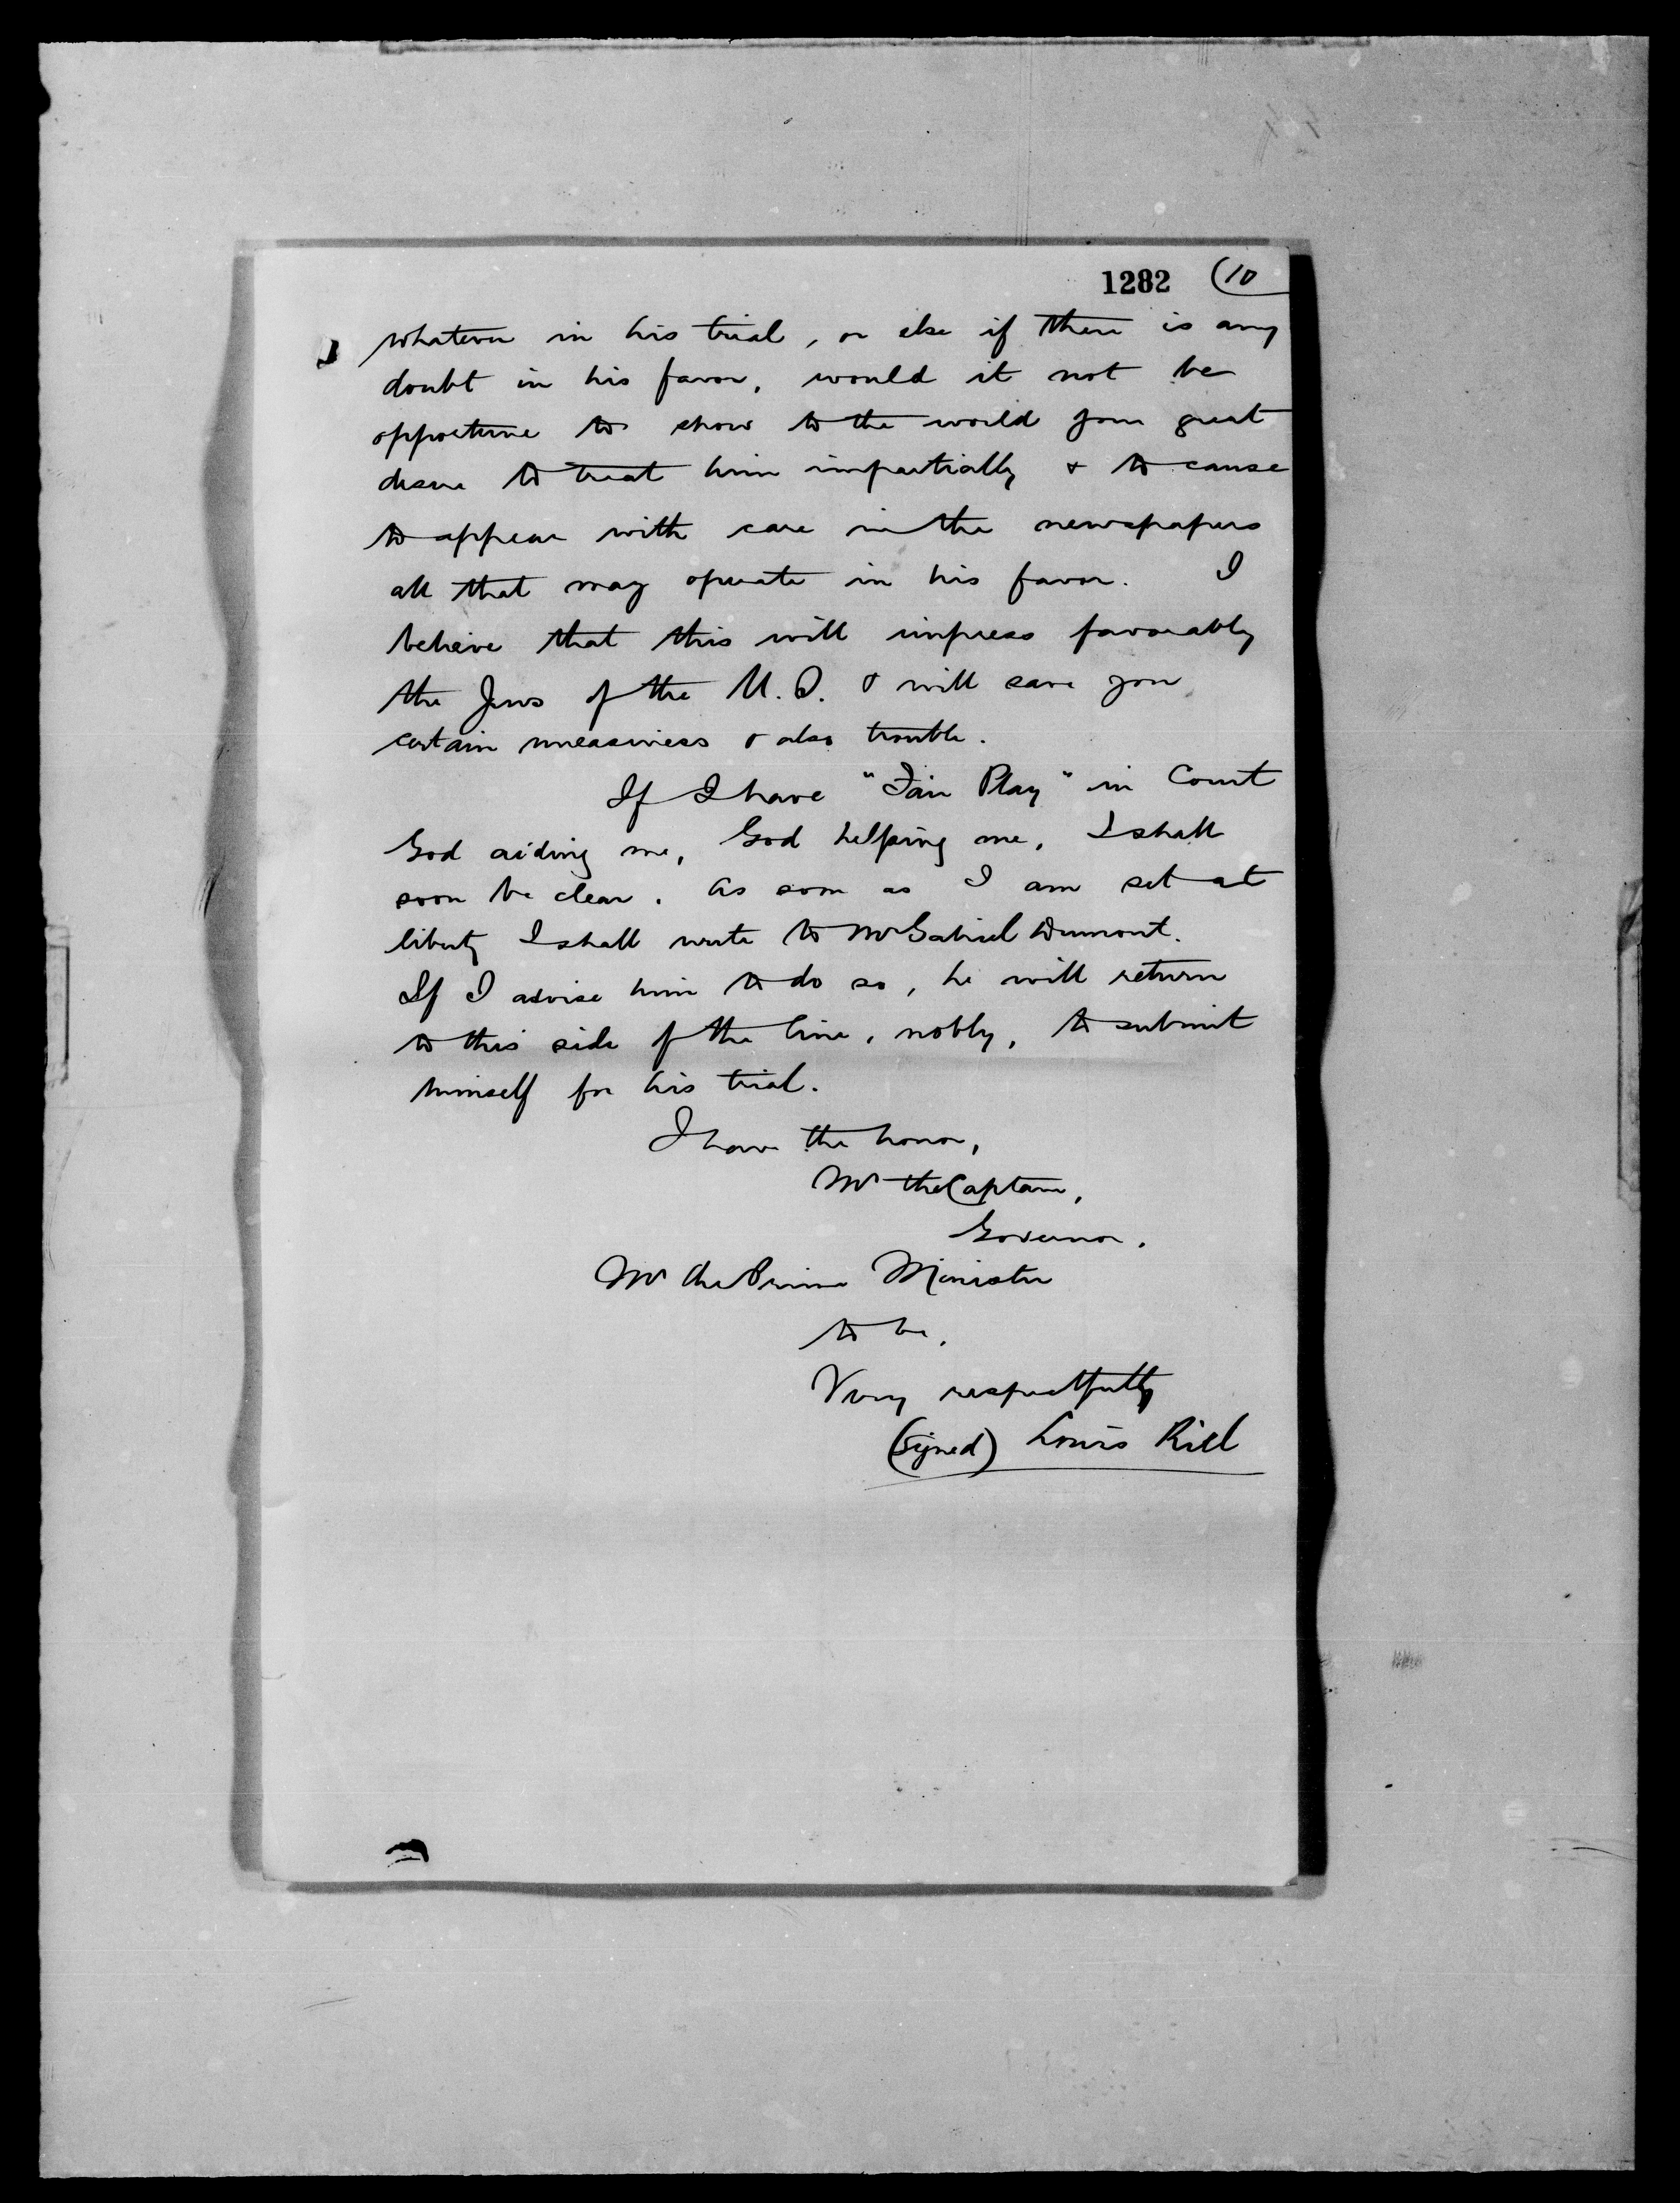 1282 (10
whatever in his trial, or else if there is any
doubt in his favor, would it not be
opportune to show to the world your great
desire to treat him impartially & to cause
to appear with care in the newspapers
all that may operate in his favor. I
believe that this will impress favorably
the Jews of the U.S. & will save you
certain uneasiness & also trouble.
If I have "Fair Play" in Court
God aiding me, God helping me, I shall
soon be clear. As soon as I am set at
liberty I shall write to Mr Gabriel Dumont.
If I advise him to do so, he will return
to this side of the line, nobly, to submit
himself for his trial.
I have the honor,
Mr the Captain,
Governor.
Mr the Prime Minister
to be,
Very respectfully
(signed) Louis Riel